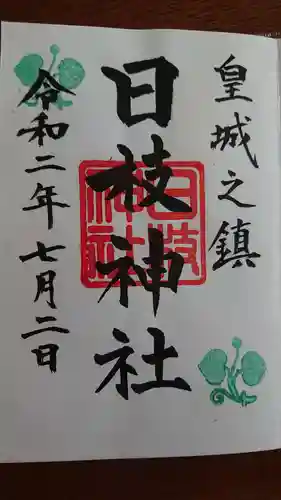 皇城之鎮
日枝神社
日枝
神社
令和二年七月二日